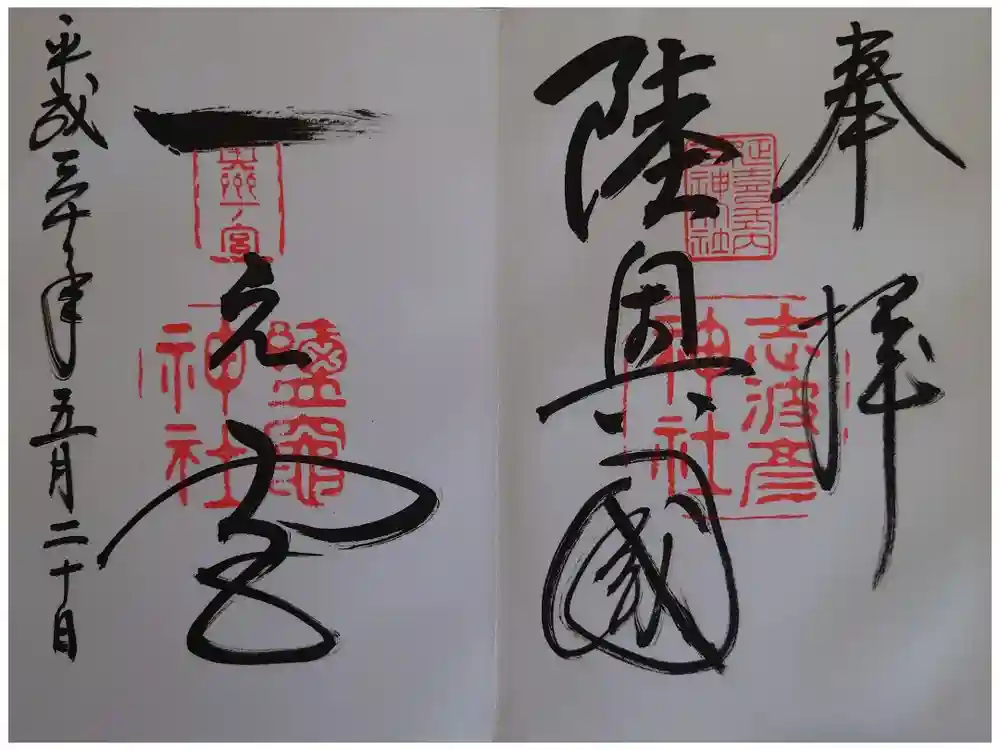 奉拝
陸奥國
延喜式内
名神大社
志波彦
神社
一之宮
奥州一ノ宮
鹽竈
神社
平成三十年五月二十日